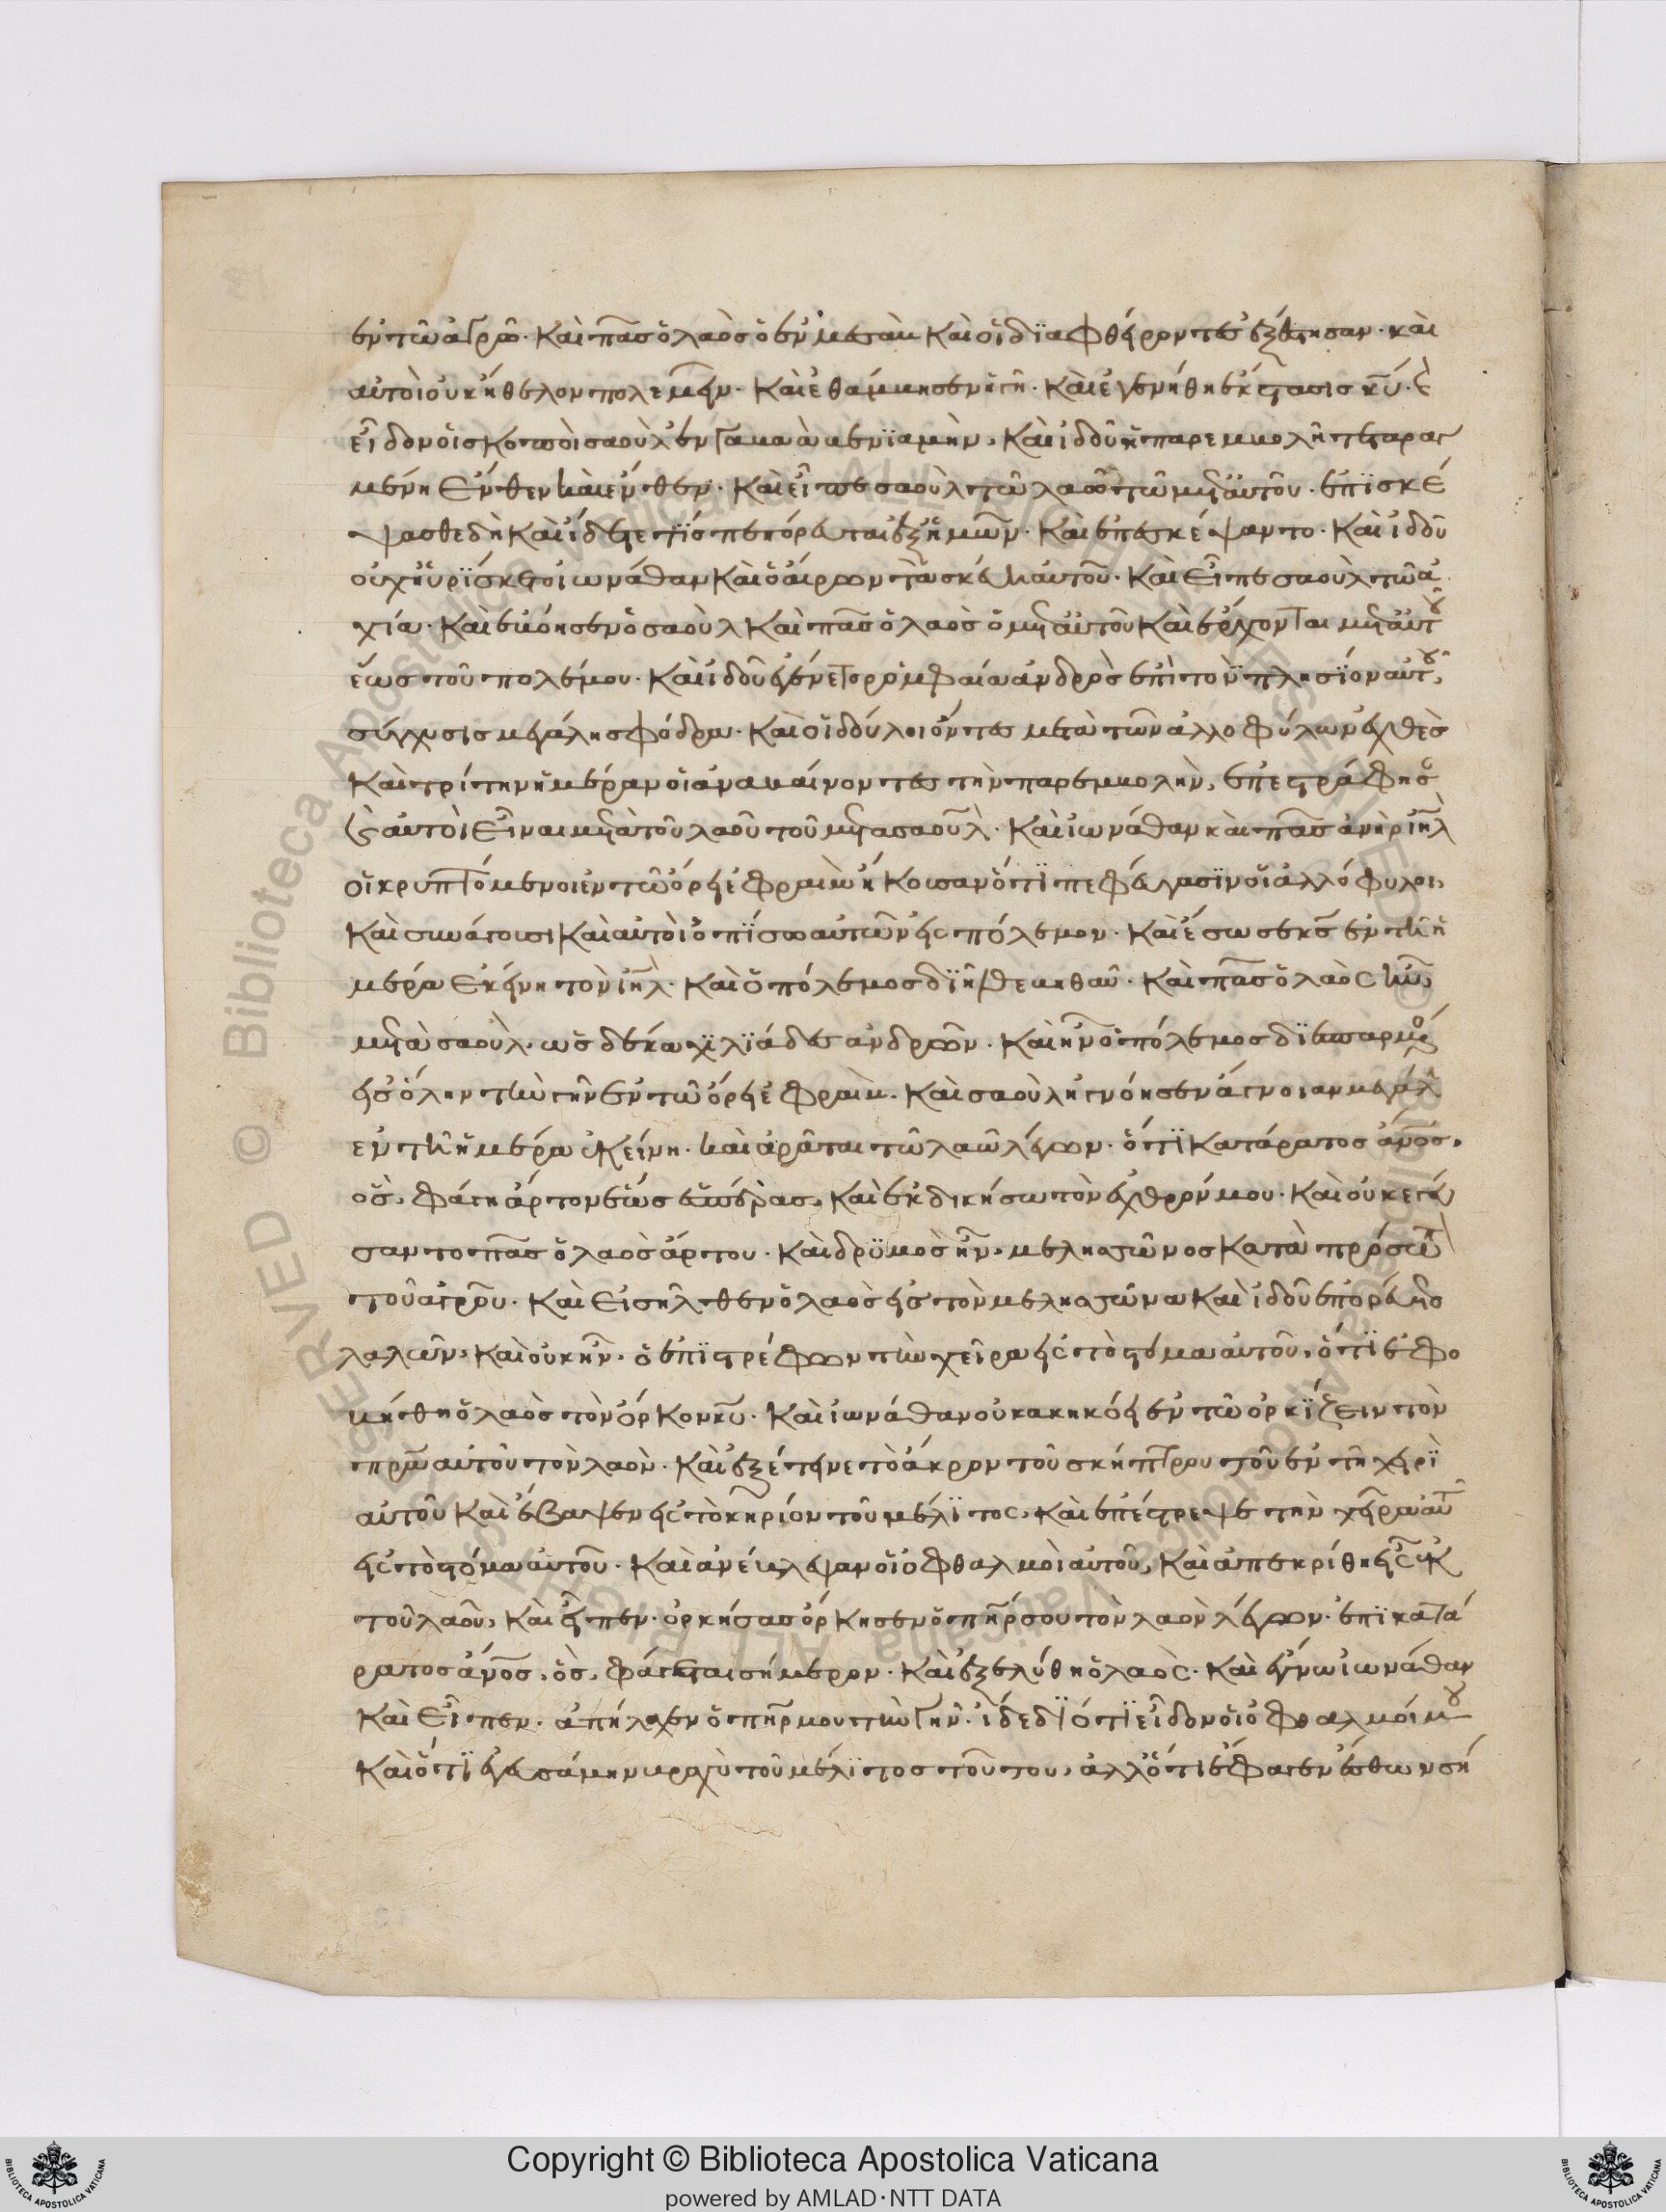 ἐν τῶ ἀγρῶ· καὶ πᾶς ὁ λαὸς ὁ ἐν μεσαὰμ καὶ οἱ διαφθείροντες ἐξέστησαν· καὶ
αὐτοὶ οὐκ ἤθελον πολεμεῖν· καὶ ἐθάμβησεν ἡ γῆ· καὶ ἐγενήθη ἔκστασις κυ̅· καὶ
εἶδον οἱ σκοποὶ σαοὺλ ἐν γαβαὰ βενϊαμὴν, καὶ ἰδοῦ ἡ παρεμβολὴ τεταραγ
μένη ἔνθεν καὶ ἔνθεν· καὶ εἶπε σαοὺλ τῶ λαῶ τῶ μετ' αὐτοῦ· ἐπϊσκέ
ψασθε δὴ καὶ ἴδετε τίς πεπόρευται ἐξ ἡμῶν· καὶ ἐπεσκέψαντο· καὶ ἰδοῦ
οὐχ ηὑρίσκετο ἰωνάθαν καὶ ὁ αἴρων τὰ σκεύη αὐτοῦ· καὶ εἶπε σαοὺλ τῶ ἀ
χία· καὶ ἐβόησεν ὁ σαοὺλ καὶ πᾶς ὁ λαὸς ὁ μετ' αὐτοῦ καὶ ἔρχονται μετ' αὐτοῦ
ἕως τοῦ πολέμου· καὶ ἰδοῦ ἐγένετο ῥομφαία ἀνδρὸς ἐπὶ τὸν πλησΐον αὐτοῦ,
σύγχυσις μεγάλη σφόδρα· καὶ οἱ δοῦλοι ὄντες μετὰ τῶν ἀλλοφύλων ἐχθὲς
καὶ τρίτην ἡμέραν οἱ ἀναβαίνοντες τὴν παρεμβολὴν, ἐπεστράφησ
καὶ αὐτοὶ εἶναι μετὰ τοῦ λαοῦ τοῦ μετὰ σαοῦλ· καὶ ἰωνάθαν καὶ πᾶς ἀνὴρ ιη̅λ
οἱ κρυπτόμενοι ἐν τῶ ὄρει ἐφραὶμ ἤκουσαν ὅτϊ πεφεύγασϊν οἱ ἀλλόφυλοι,
καὶ συνάπτουσι καὶ αὐτοὶ ὀπίσω αὐτῶν εἰς πόλεμον· καὶ ἔσωσε κς̅ ἐν τῆ ἡ
μέρα ἐκείνη τὸν ιη̅λ· καὶ ὁ πόλεμος διῆλθε βηθαῦ· καὶ πᾶς ὁ λαὸς ἦν
μετὰ σαοὺλ, ὡς δέκα χϊλϊάδες ἀνδρῶν· καὶ ἦν ὁ πόλεμος δϊεσπαρμένος
εἰς ὅλην τὴν γῆν ἐν τῶ ὄρει ἐφραὶμ· καὶ σαοὺλ ἠγνόησεν ἄγνοιαν μεγάλην
ἐν τῆ ἡμέρα ἐκείνη· καὶ ἀρᾶται τῶ λαῶ λέγων· ὅτϊ κατάρατος ἄνος̅,
ὃς, φάγη ἄρτον ἕως ἑσπέρας, καὶ ἐκδικήσω τὸν ἐχθρόν μου· καὶ οὐκ ἐγεύ
σαντο πᾶς ὁ λαὸς ἄρτου· καὶ δρϋμὸς ἦν, μελησσῶνος κατὰ πρόσωπον
τοῦ ἀγροῦ· καὶ εἰσῆλθεν ὁ λαὸς εἰς τὸν μελησσῶνα καὶ ἰδοῦ ἐπορεύετο
λαλῶν, καὶ οὐκ ἦν, ὁ ἐπϊστρέφων τὴν χεῖρα εἰς τὸ στόμα αὐτοῦ, ὅτϊ ἐφο
βήθη ὁ λαὸς τὸν ὅρκον κυ̅· καὶ ἰωνάθαν οὐκ ἀκηκόει ἐν τῶ ὁρκΐζειν τὸν
πρα̅ αὐτοῦ τὸν λαὸν· καὶ ἐξέτεινε τὸ ἄκρον τοῦ σκήπτρου τοῦ ἐν τῆ χειρὶ
αὐτοῦ καὶ ἔβαψεν εἰς τὸ κηρίον τοῦ μέλϊτος, καὶ ἐπέστρεψε τὴν χεῖρα αὐτοῦ
εἰς τὸ στόμα αὐτοῦ· καὶ ἀνέβλεψαν οἱ ὀφθαλμοὶ αὐτοῦ, καὶ ἀπεκρίθη εἷς ἐκ
τοῦ λαοῦ, καὶ εἶπεν· ὁρκήσας ὅρκησεν ὁ πηρ̅ σου τὸν λαὸν λέγων· ἐπϊκατά
ρατος ἄνος̅, ὃς, φάγεται σήμερον· καὶ ἐξελύθη ὁ λαὸς· καὶ ἔγνω ἰωνάθαν
καὶ εἶπεν· ἀπήλαχεν ὁ πηρ̅ μου τὴν γῆν· ἴδε δϊότϊ εἶδον οἱ ὀφθαλμοί μου
καὶ ὅτϊ ἐγευσάμην βραχὺ τοῦ μέλϊτος τούτου, ἀλλ' ὅτι ἔφαγεν ἔσθων σή
Copyright © Biblioteca Apostolica Vaticana
powered by AMLAD·NTT DATA